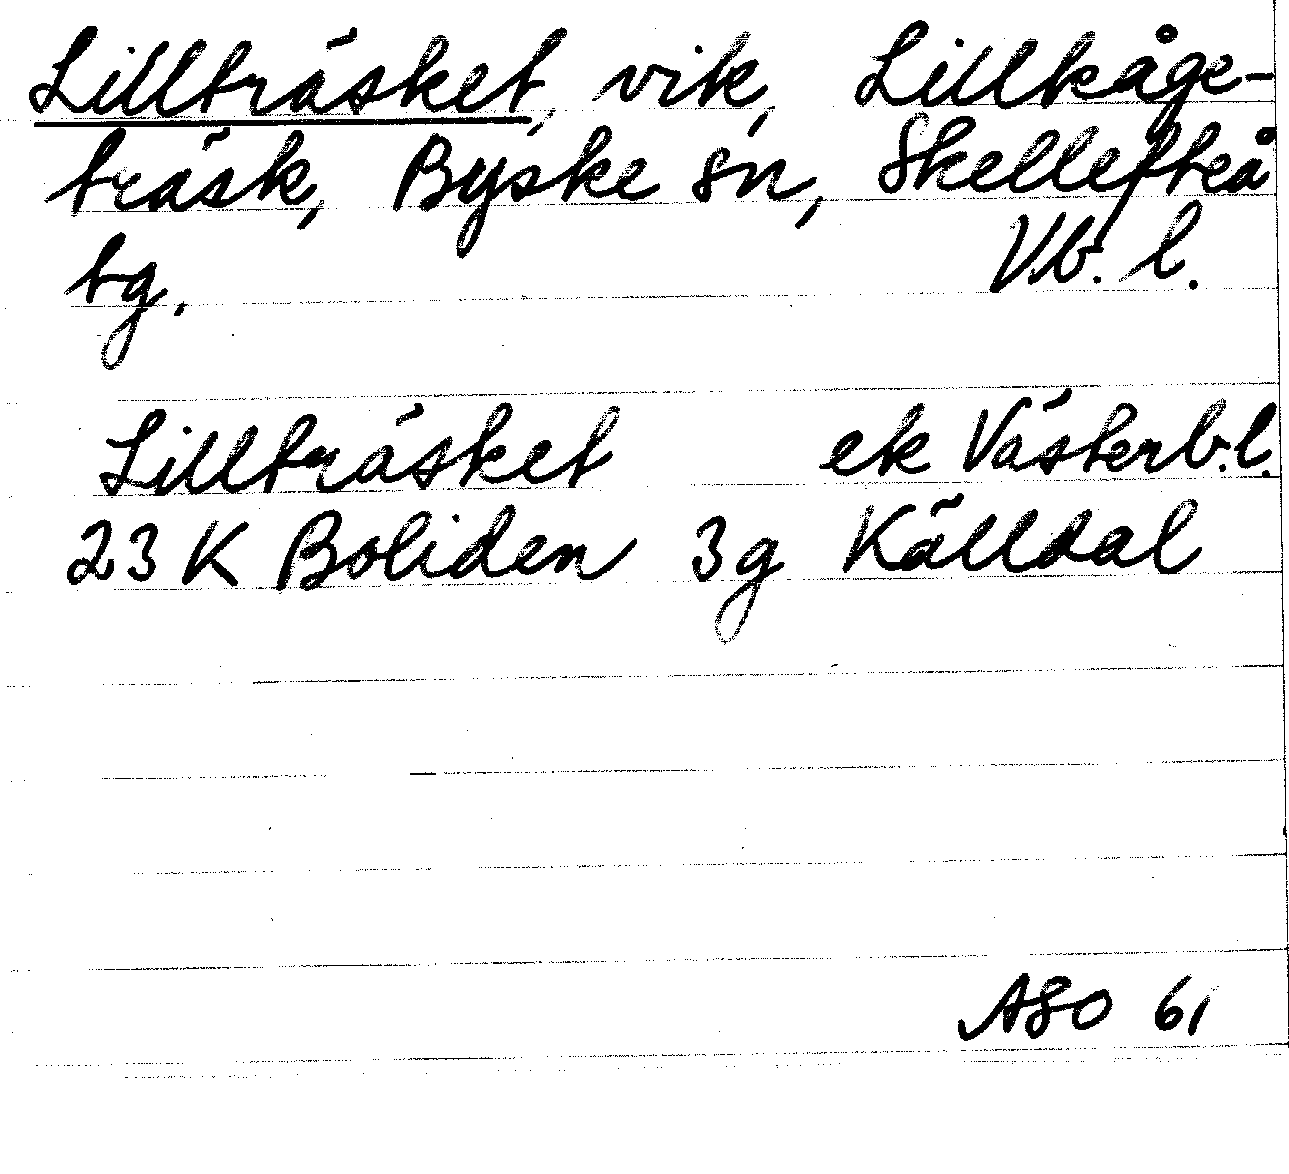 Lillträsket, vik, Lillkåge-
träsk, Byske sn, Skellefteå
tg. Vb. l.
Lillträsket ek Västerb.l.
23 K Boliden 3g Källdal
ASO 61